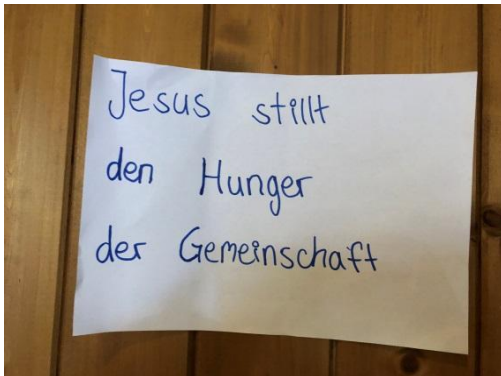 Jesus stillt
den Hunger
der Gemeinschaft